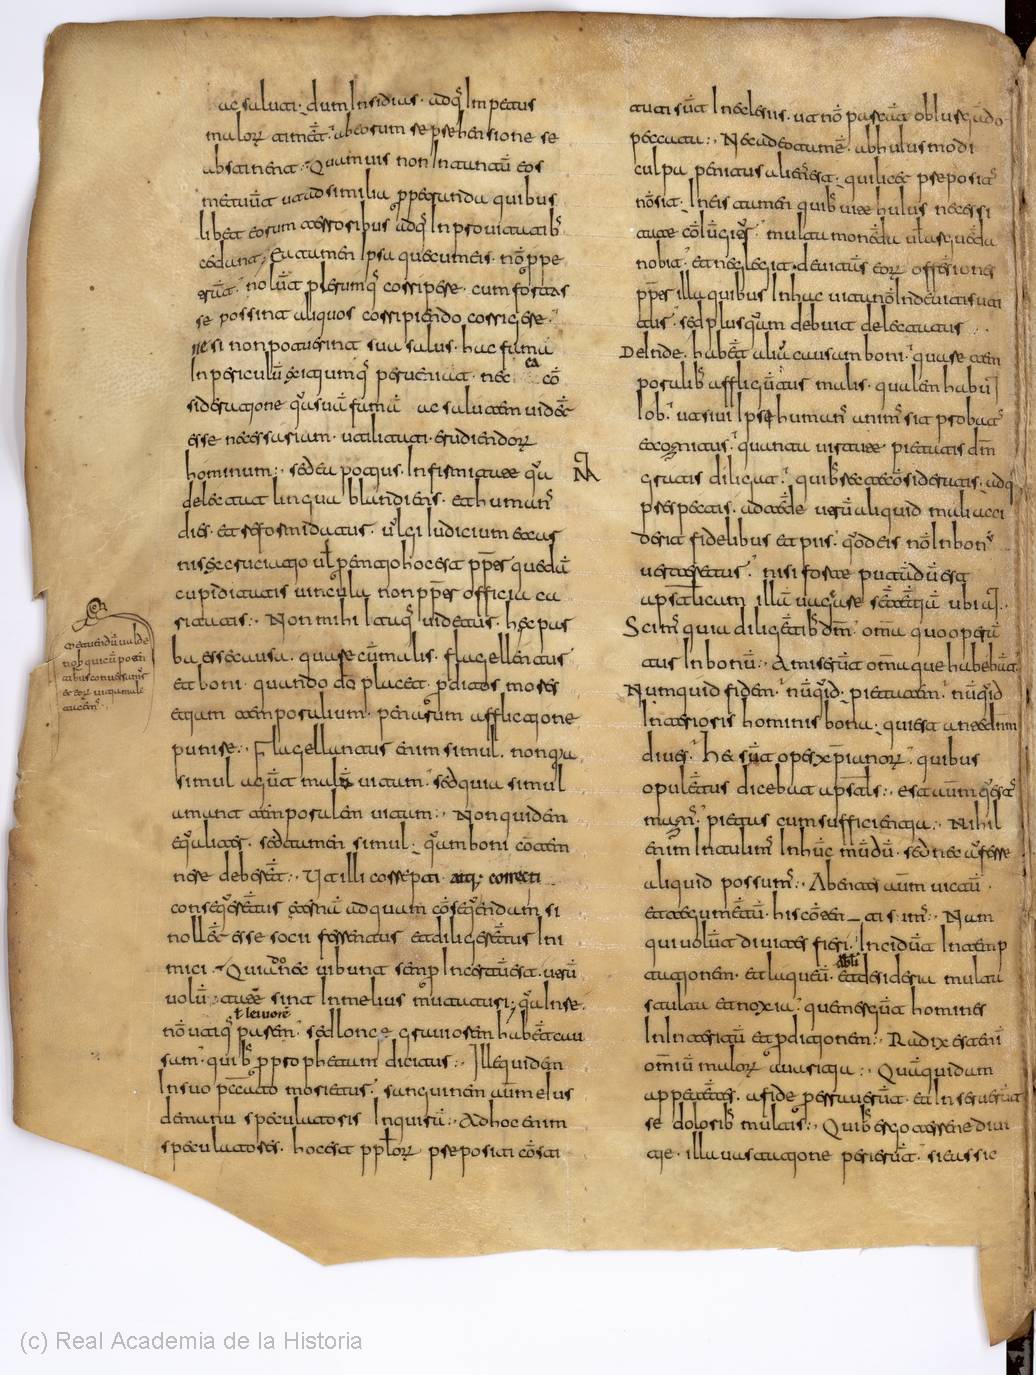 ac saluti. dum Insidias. adq; Impetus
malor̄ timēt. ab eorum reprehensione se
abstinent. Quamuis non Intantū eos
metuūt ut ad similia pperanda quibus
libet eorum terroribus adq; Inprouitatib;
cedant, Ea tamen ipsa que cum eis. nō ppe
trāt. nolūt plerumq; corripere. cum fortas
se possint aliquos corripiendo corrigere.
ne si non potuerint sua salus. hac fama
In periculū exitiumq; perueniat. nec ea cō
sideratione qua suā famā ac salutem uidēt
esse necessariam. utilitati erudiendor̄
hominum: sed ea potius. Infirmitate qua
delectat lingua blandiens. et humanus
dies. et reformidatur. uulgi Iudicium et car
nis excruciatio uel peremtio hoc est ppter quedā
cupiditatis uincula non ppter officia ca
ritatis: Non mihi Itaq; uidetur. hec par
ba esse causa. quare cū malis. flagellentur
et boni. quando do placet. pditos mores
etiam temporalium. penarum afflictione
punire: Flagellantur enim simul. non quia
simul agūt malā uitam. sed quia simul
amant temporalem uitam: Non quidem
equaliter. sed tamen simul. quam boni contem
nere deberēt: Ut illi correpti atq; correcti
consequerētur eternā ad quam cōsequendam si
nollēt esse socii ferrentur et diligerētur Ini
mici. Quia donec uibunt semp Incertū est. utrū
uolūtatē sint In melius mutaturi; Qua In re
ł leuiorē
nō utiq; parem. sed longe grauiorem habēt cau
sam. quib; p prophetam dicitur: Ille quidem
In suo peccato morietur. sanguinem autem eius
de manu speculatoris Inquirā: Ad hoc enim
speculatores. hoc est pplor̄ prepositi cōsti
metuendū ualde
nobis qui cū poten
tibus conuersamur
et eor̄ uitam male
tacemus
tuti sūt In eclesiis. ut nō parcāt obIurgādo
peccata: Nec adeo tamē. ab huius modi
culpa penitus alienus est. qui licet prepositus
nō sit. In eis tamen quib; uite huius necessi
tate cōIugitur. multa monēda uel arguēda
nobit. et neglegit deuitans eor̄ offēsiones
ppter illa quibus In hac uita nō Indebitis uti
tur. sed plus quam debuit delectatur
Deinde. habēt aliā causam boni. quare tem
poralib; affligātur malis. qualem habuit
Iob. ut siui Ipse humanus animus sit probatus
et cognitus. quanta uirtute pietatis dm̄
gratis diligat. quib; recte cōsideratis. adq;
perspectis. adtēde utrū aliquid mali acci
derit fidelibus et piis. quod eis nō In bonum
uerteretur. nisi forte putādū est
apstolicam illā uagare sētētiā ubi ait.
Scimus quia diligētib; dm̄. omīa quooperā
tur In bonū: Amiserūt omīa que habebāt.
Numquid fidem. nūquid. pietatem. nūquid
Interioris hominis bona. qui est ante dm̄
diues. he sūt opes xp̄ianor̄. quibus
opulētus dicebat apstals: est aum questus
magnus. pietas cum sufficientia: Nihil
enim Intulimus In hūc mūdū. sed nec auferre
aliquid possumus: Abentes aum uictū.
et tegumētū. his cōtenti simus: Nam
qui uolūt diuites fieri. Incidūt In temp
tationem. et laqueū. et desideria multa
stulta et noxia. que mergūt homines
In Interitū et pditionem: Radix est enim
omīū malor̄ auaritia: Quā quidam
appetētes. a fide perrauerūt. et Inseruerūt
se dolorib; multis: Quib; ergo terrene diui
tie. illa uastatione perierūt. si eas sic
(c) Real Academia de la Historia